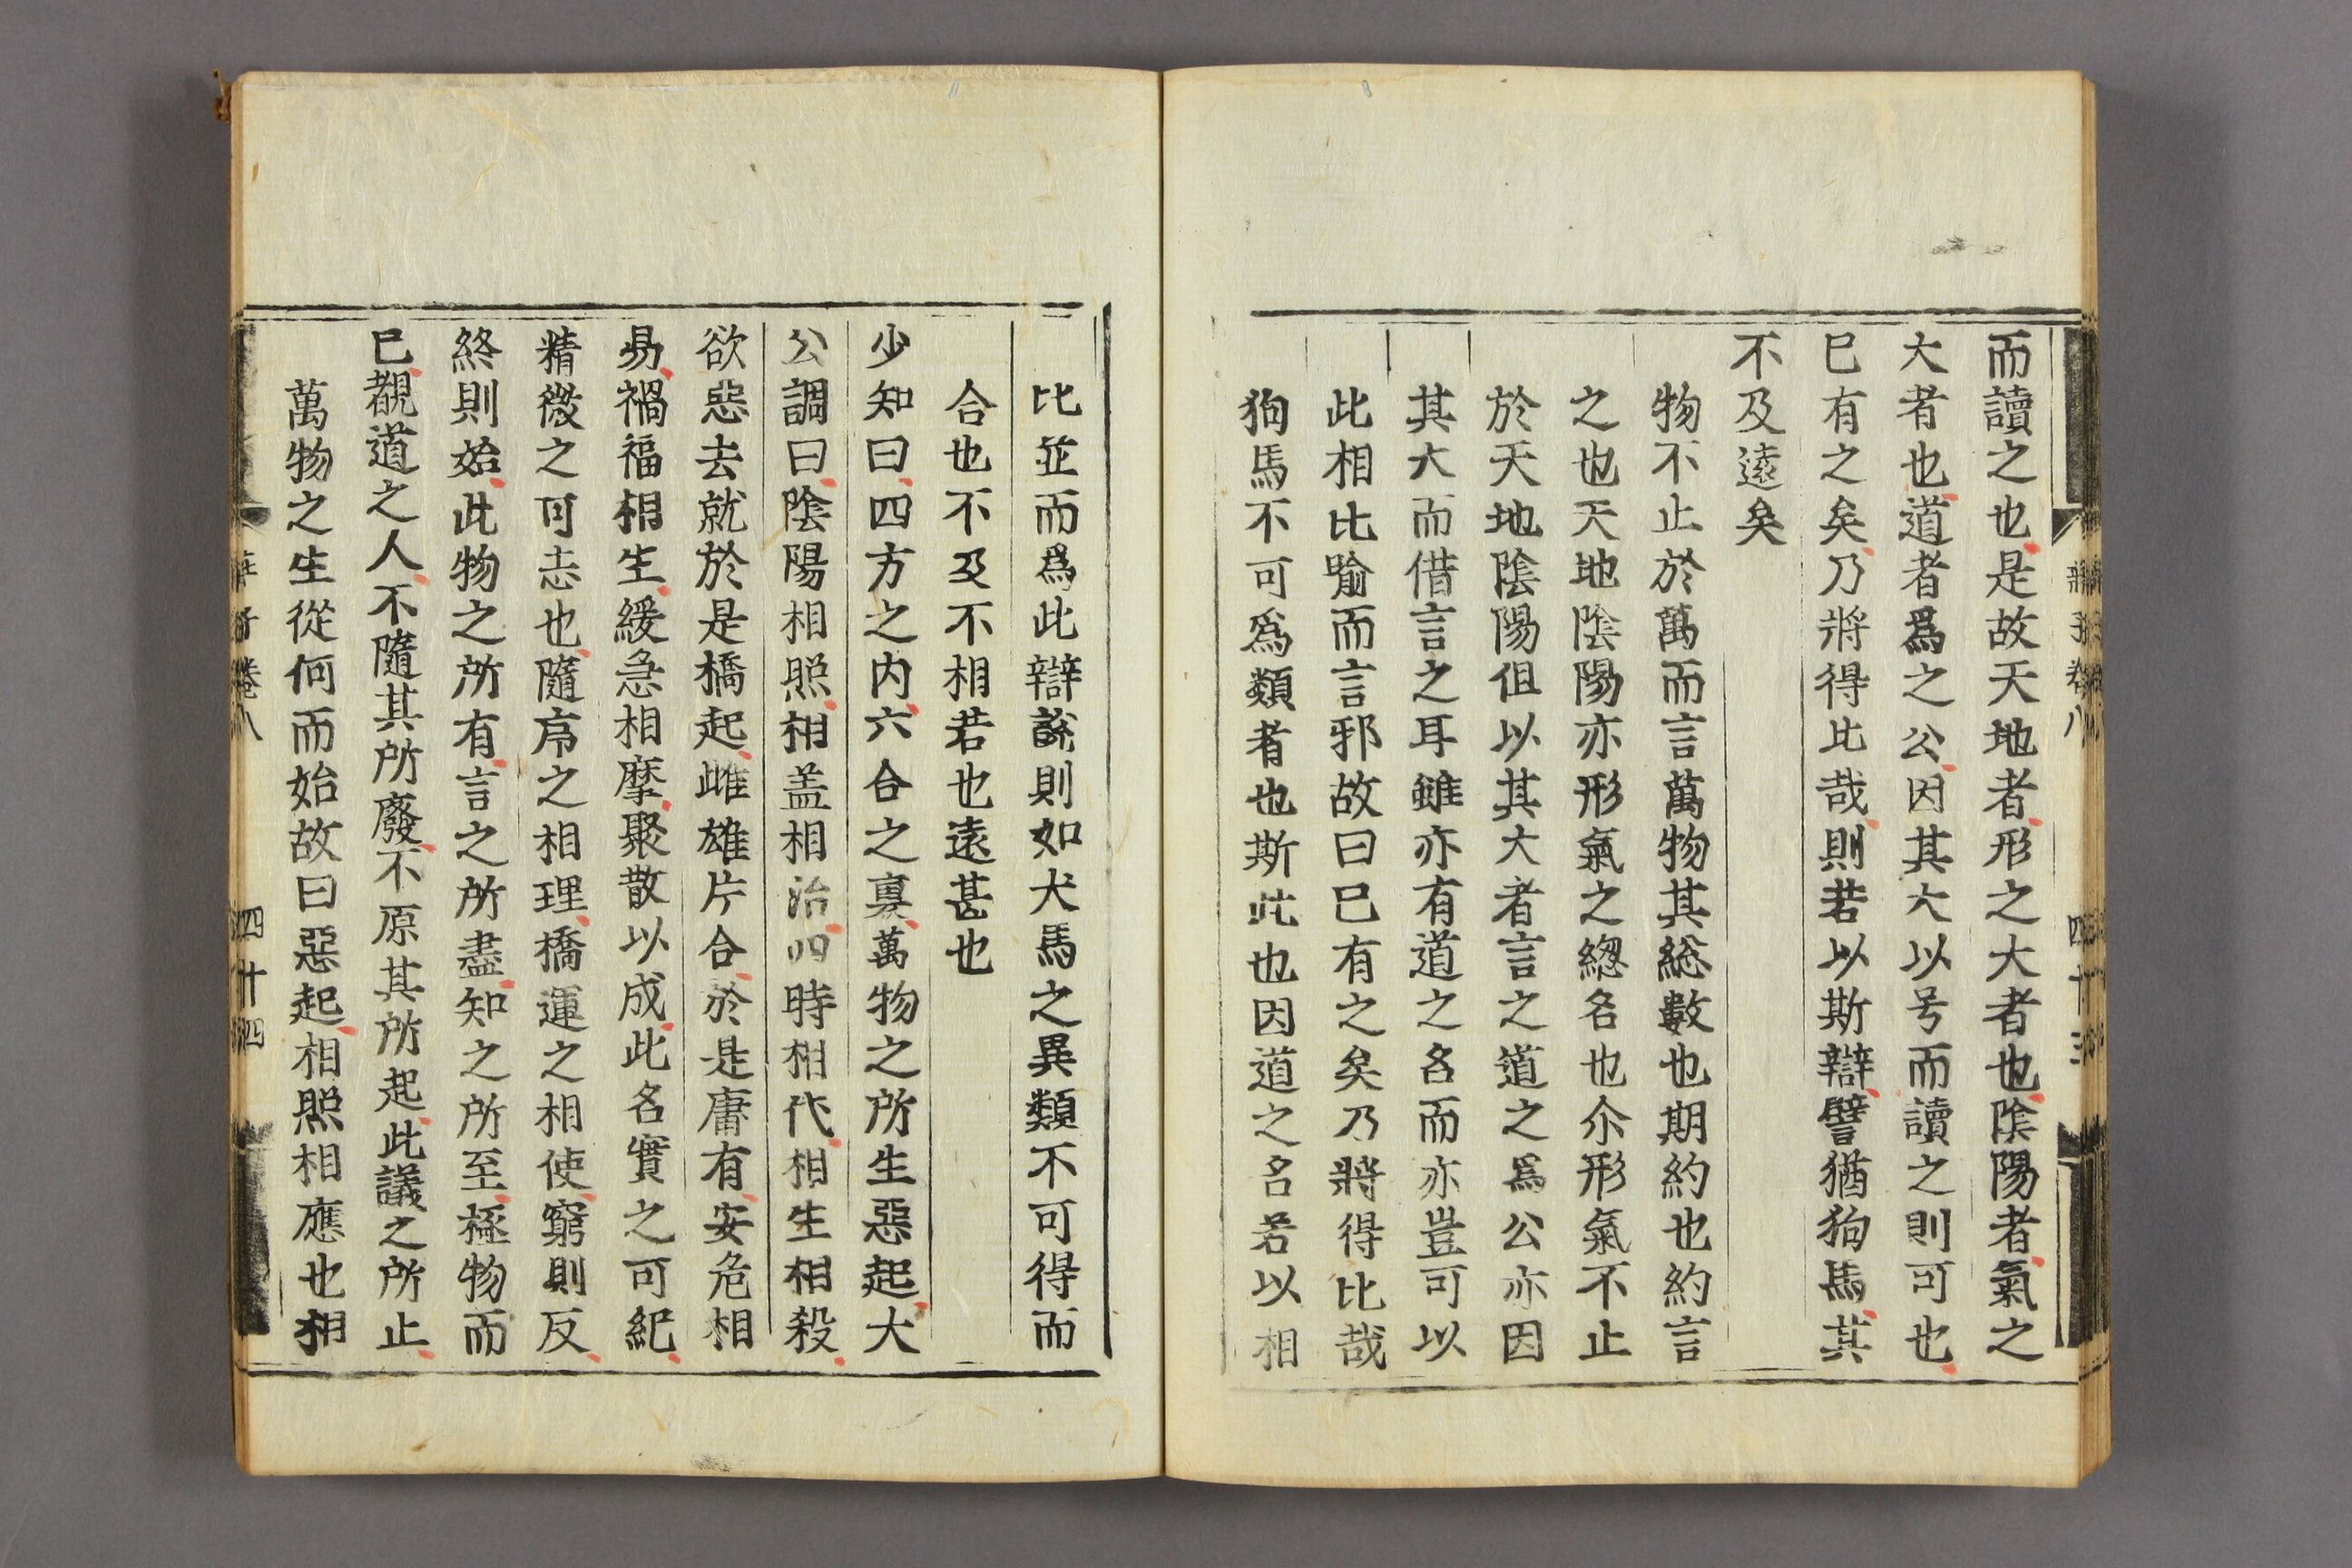 而讀之也是故天地者形之大者也陰陽者氣之
大者也道者爲之公因其大以号而讀之則可也
已有之矣乃將得比哉則若以斯辯譬猶狗馬其
不及遠矣
物不止於萬而言萬物其総數也期約也約言
之也天地陰陽亦形氣之緫名也尒形氣不止
於天地陰陽但以其大者言之道之爲公亦因
其大而借言之耳雖亦有道之名而亦豈可以
此相比喻而言邪故曰已有之矣乃將得比哉
狗馬不可爲類者也斯此也因道之名若以相
比並而爲此辯說則如犬馬之異類不可得而
合也不及不相若也遠甚也
少知曰四方之内六合之裏萬物之所生惡起大
公調曰陰陽相照相盖相治四時相代相生相殺
欲惡去就於是橋起雌雄片合於是庸有安危相
易禍福相生緩急相摩聚散以成此名實之可紀
精微之可志也隨序之相理橋運之相使窮則反
終則始此物之所有言之所盡知之所至極物而
已覩道之人不隨其所廢不原其所起此議之所止
萬物之生從何而始故曰惡起相照相應也相
莊子卷八 四十四